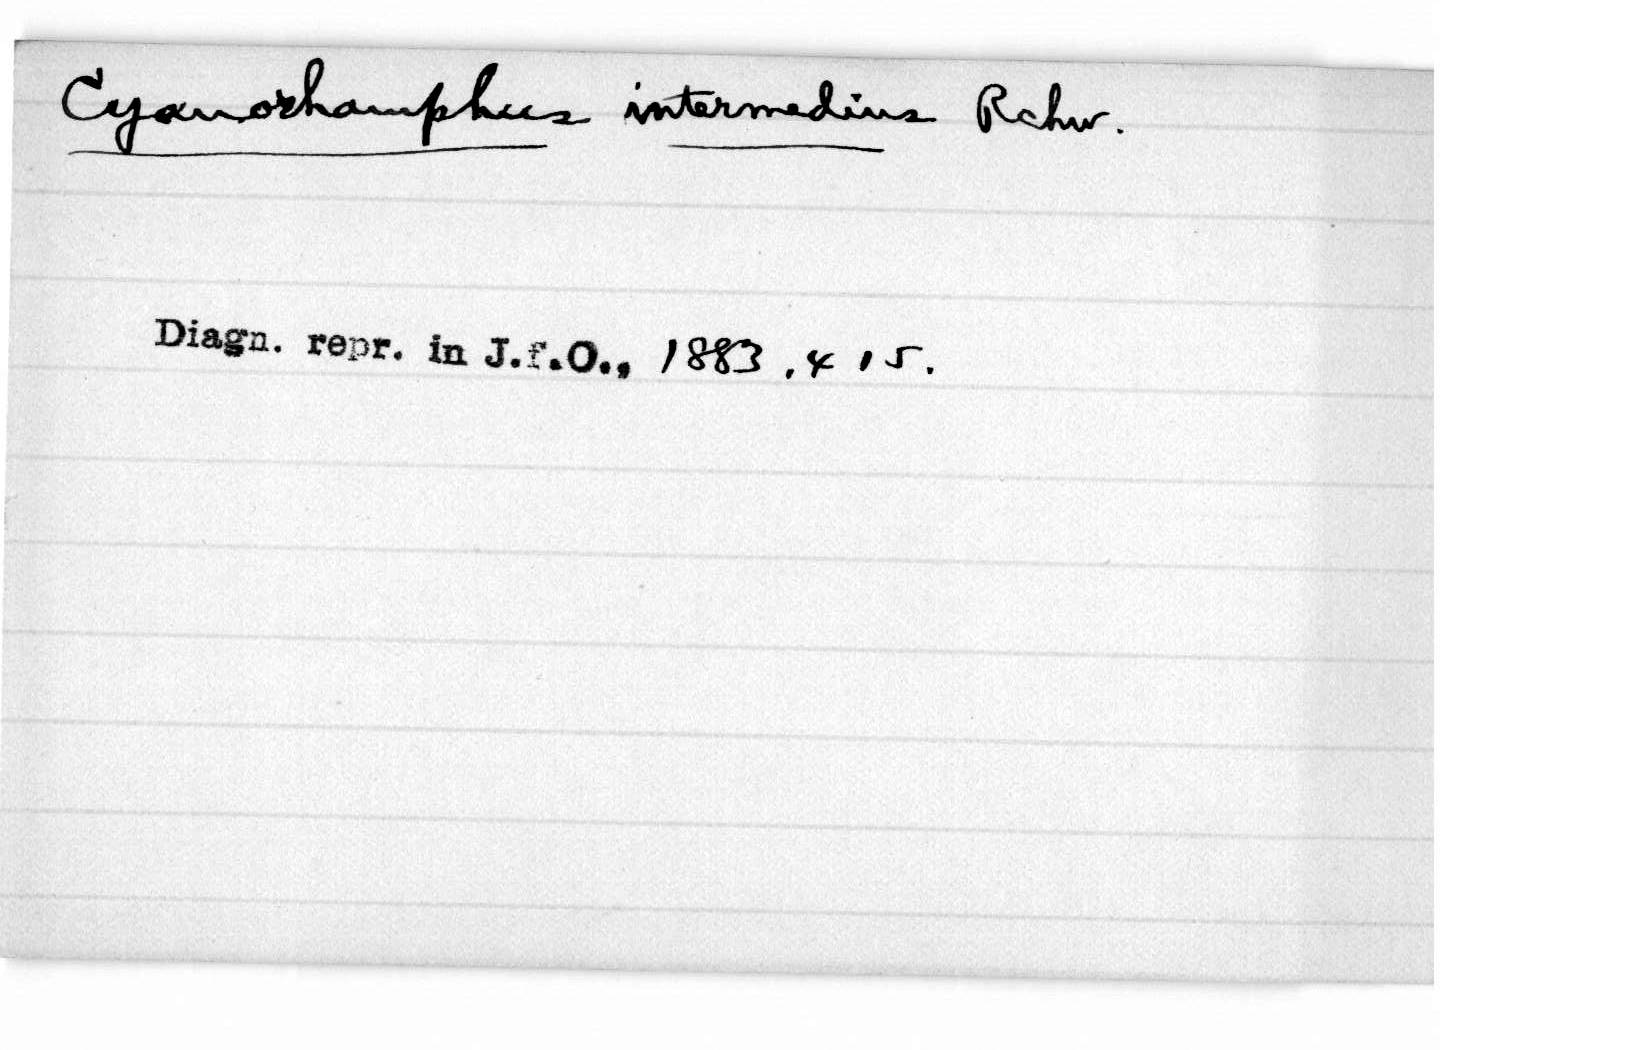 Cyanorhamphus intermedius Rchw.
Diagn. repr. in J.f.O., 1883, 415.